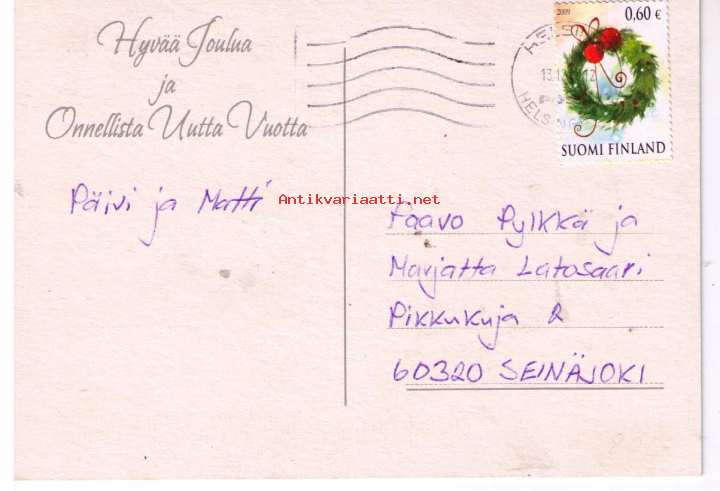 Hyvää Joulua
ja
Onnellista Uutta Vuotta
Päivi ja Matti
Antikvariaatti.net
2009
0,60 €
SUOMI FINLAND
HELSI
HELS
Paavo Pylkkä ja
Marjatta Latosaari
Pikkukuja 2
60320 SEINÄJOKI